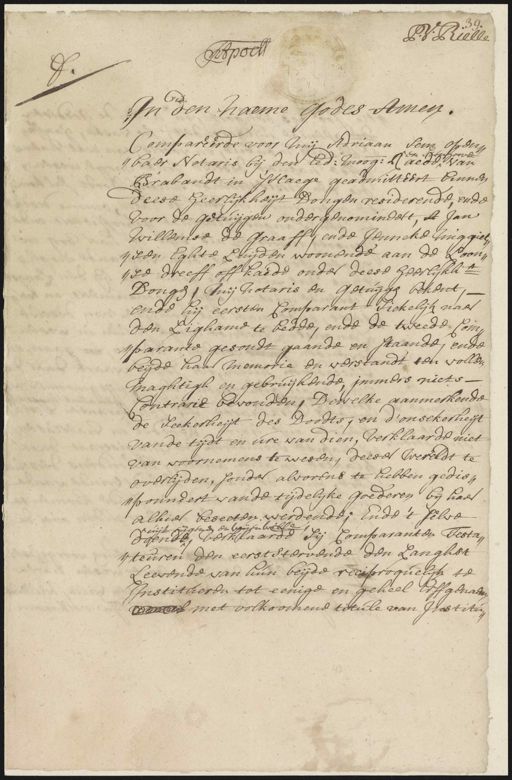 39.
In den naeme Godes Amen.
Compareerde voor mij Adriaan open,,
,,baer Notaris bij den Ed: moog: Raede van
Brabandt in Haege geadmitteert binnen
deese Heerlijkheijt Dongen resideerende, ende
voor de getuijgen ondergenomineert, Jan
Willemse de Graaff, ende Jenneke
,,sen Egte Luijden woonende aan de
dreeff off kaede onder deese Heerlijkh:t
Donge, mij Notaris en getuijge bekent,
ende hij eersten Comparant Siekelijk naer
den Lighame te bedde, ende de tweede Com,,
,,parante gesondt gaande en staande, ende
beijde haer Memorie en verstandt ten vollen
maghtigh en gebruijkende, immers niets
Contrarie bevonden, Dewelke aanmerkende
de Seekerheijt des Doodts, en d'onseekerheijt
vande tijdt en ure van dien, verklaarde niet
van voornemens te wesen, deese wereldt te
overlijden, sonder alvorens te hebben gedis,,
,,poneert vande tijdelijke goederen bij haer
alhier beseeten werdende; Ende 't selve
doende, verklaarde Sij Comparanten Testa,,
,,teuren den eerststervende den Langhst
Leevende van hun beijde reciproquelijk te
Institueren tot eenige en geheel Erffgenaem
met volkoomene titule van Institu,,